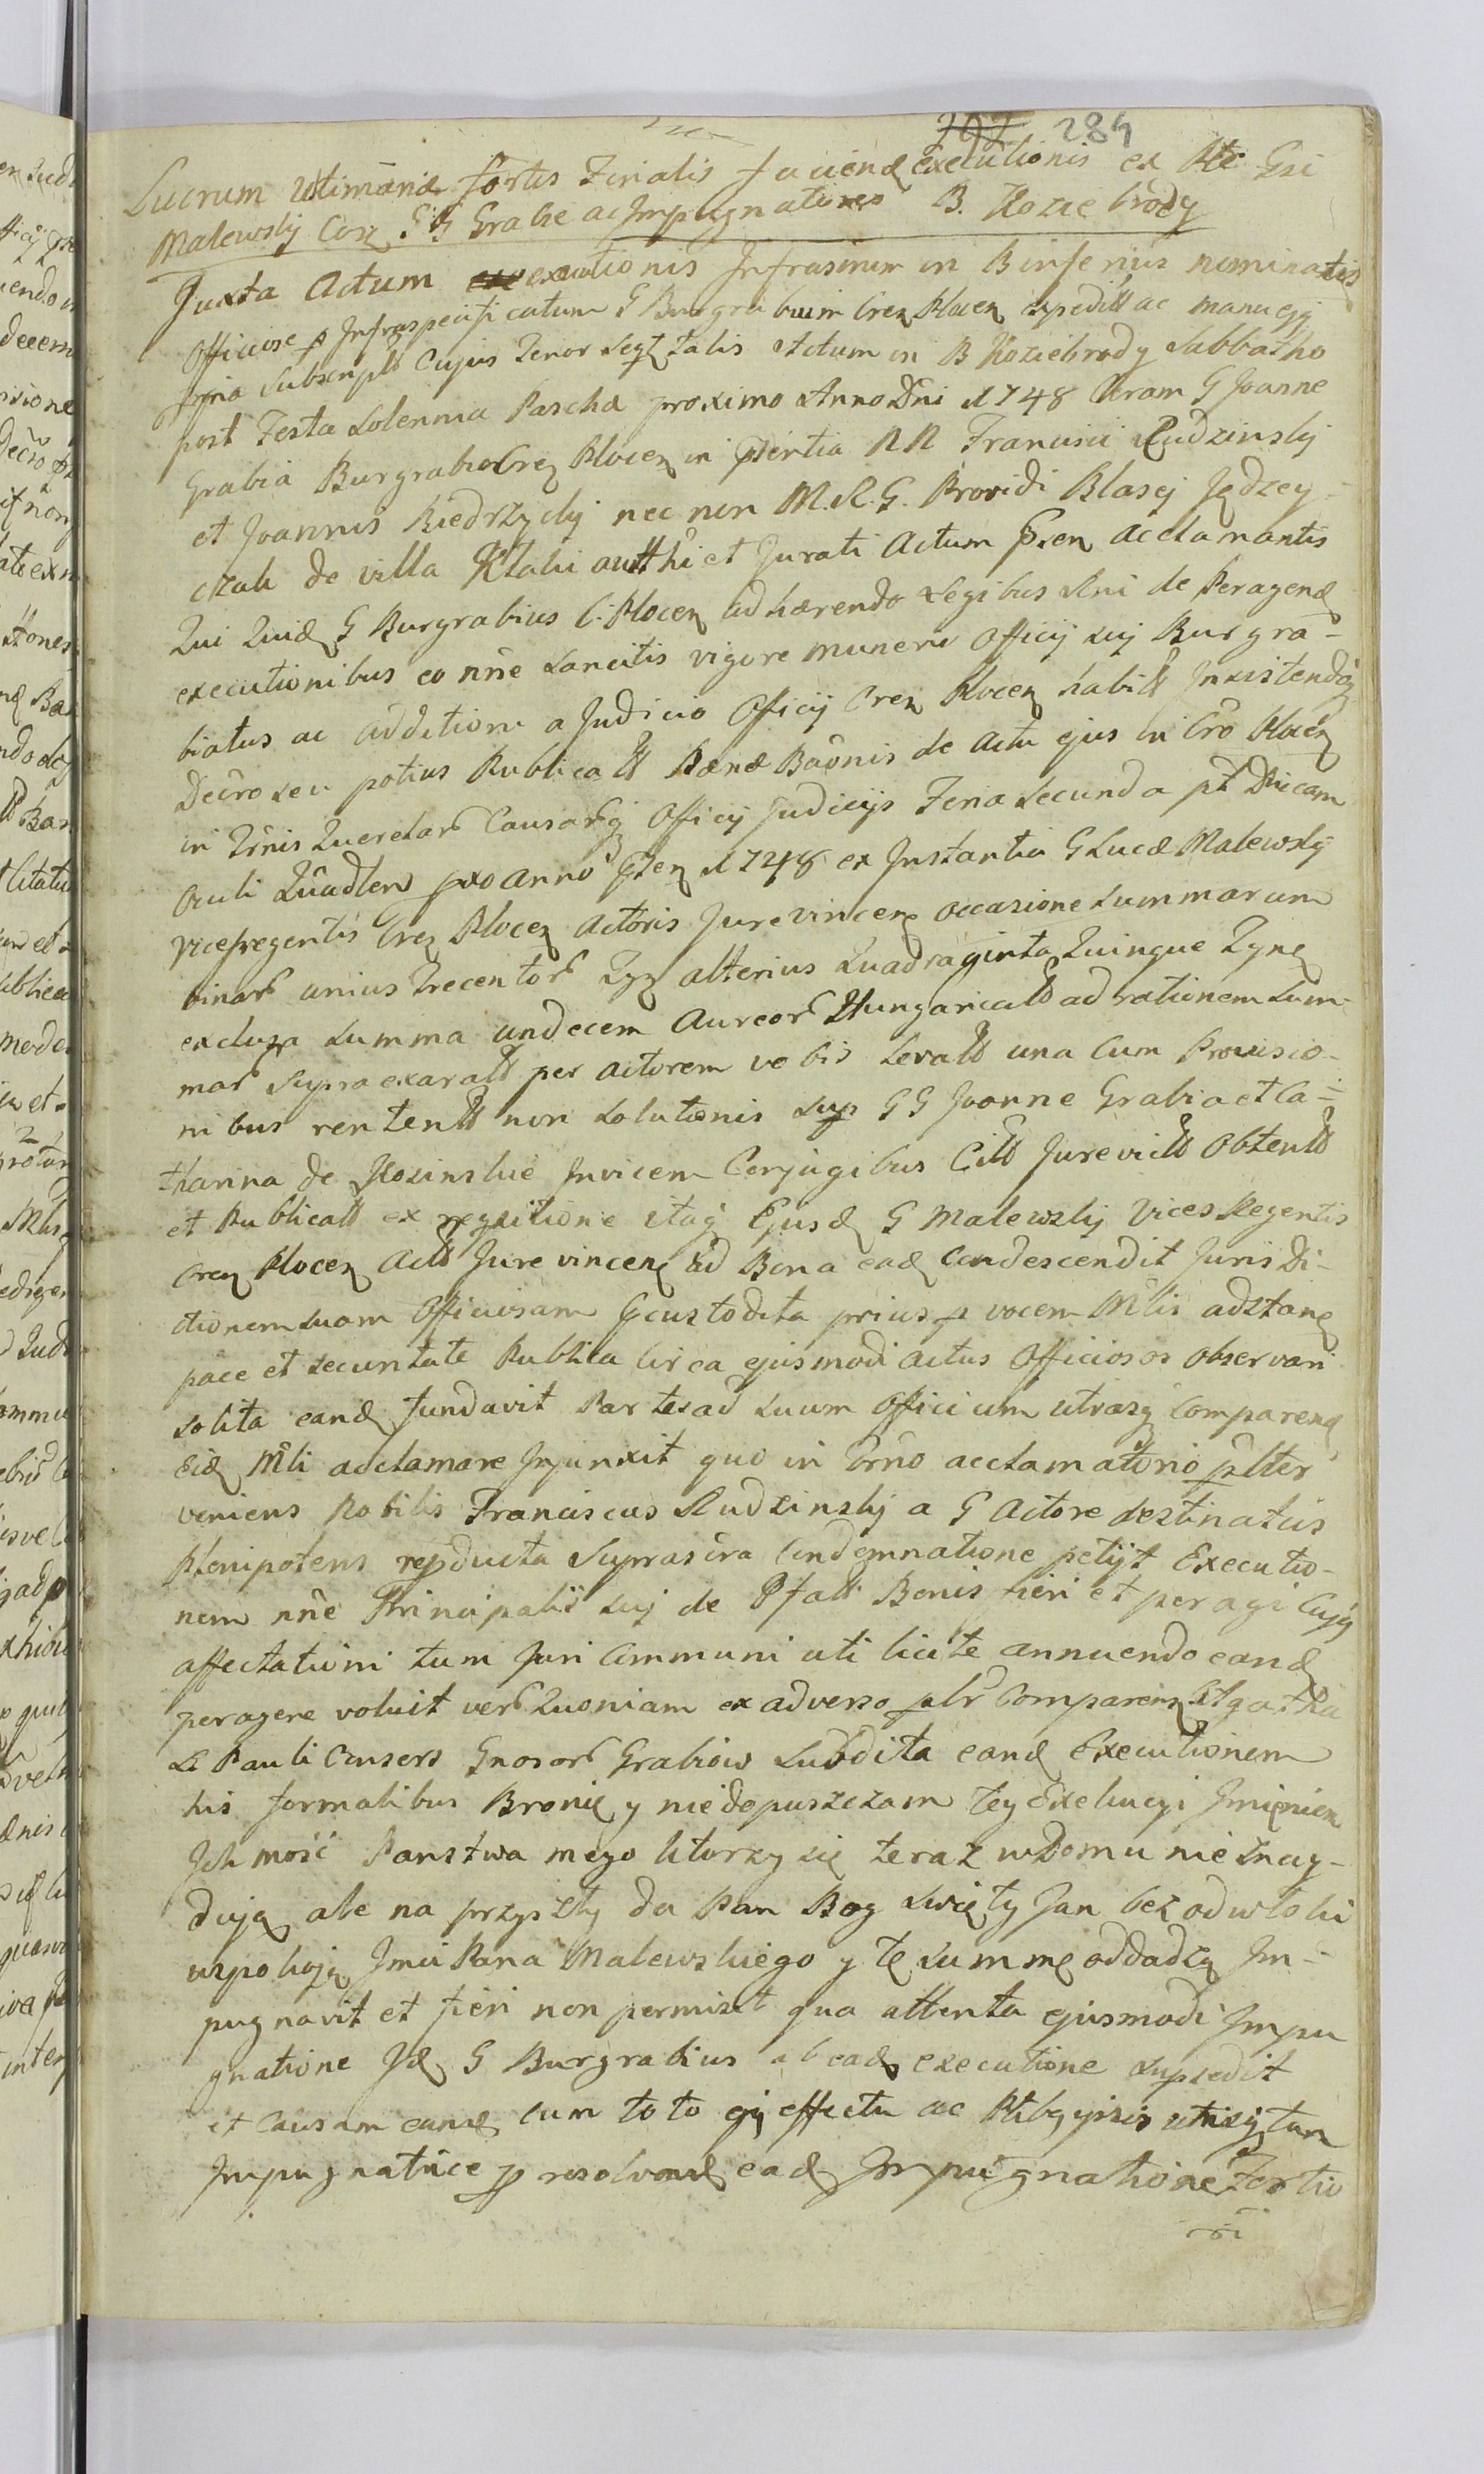 292 289
Lucrum Ultimariæ fortis Finalis faciendæ Executionis ex Ptte Gsi
Malewskij Cor GG Grabie ac Impugnatores B. Koziebrody
Juxta Actum executionis Infrascrum in B inferius nominatis
Officiose p Infraspecificatum G Burgrabium Cren Plocen expeditt ac manu ejq
ppria Subscriptt Cujus Tenor Seqt talis Actum in B Koziebrody Sabbatho
post Festa Solennia Pascha proximo Anno Dni 1748 Coram G Joanne
Grabia Burgrabio Cren Plocen in pñtia NN Francisci Rudzinskij
et Joannis Kiedrzyckij nec non M.R.G. Providi Blasej Jędzey-
czak de villa Ktaki autthi et Jurati Actum Psen acclamantis
Qui Quid G Burgrabius C. Plocen adhærendo Legibus Rni de Peragend
executionibus eo nñe Sancitis vigore muneris Officij suj Burgra-
biatus ac additione a Judicio Officij Cren Plocen habitt Insistendoq
Decro seu potius Publicatt Pænæ Baõnis de Actu ejus in Cro Plocen
in Tñnis Querelarr Causarrq Officij Judicijs Feria Secunda pt Dñicam
Oculi Quadlem pxo Anno Psen 1748 ex Instantia G Lucæ Malewskij
Viceregentis Cren Plocen Actoris Jurevincen occasione Summarum
binarr unius Trecentorr Tyn alterius Quadraginta Quinque Tynq
excluza Summa undecem Aureorr Hungaricatt ad rationem Sum-
marr Supraexaratt per actorem vobis Levatt una cum Provisio-
nibus rententt non Solutionis sup GG Joanne Grabia et Ca-
tharina de Kozinskie Invicem Conjugibus Citt Jurevictt Obtentt
et Publicatt ex reqsitione itaq Ejusd G Malewskij Vices Regentis
Cren Plocen Actt Jure vincen ad Bona ead Condescendit Jurisdi-
ctionem suam Officiosam Gcustodita prius p vocem Mlis adstanq
pace et securitate Publica circa ejusmodi actus Officiosos observari
solita eand fundavit Partes ad suum Officium utrasq comparend
eid Mli acclamare Injunxit quo in Trno acclamatorio plter
veniens Nobilis Franciscus Rudzinskij a G Actore destinatus
Plenipotens repducta Suprascra Condemnatione petijt Executio-
nem nñe Principalis suj de Pfatt Bonis fieri et peragi Cujq
affectationi tum Juri Communi uti licite annuendo eand
peragere voluit verr Quoniam ex adverso plr Comparens Agatka
L Pauli Censers Gnosorr Grabiow Subdita eand Executionem
his formalibus Bronię y niedopuszczam tey Exekucyi Imięniem
Ich mość Panstwa mego ktorzy się teraz w Domu nie Znay-
duią ale na przyszły da Pan Bog Swięty Jan bez odwłoki
uspokoją Jmci Pana Malewskiego y tę summę oddadzą Im-
pugnavit et fieri non permisit qua attenta ejusmodi Impu
gnatione Id G Burgrabius ab ead executione supsedit
et Causam eand cum toto ej effectu ac Ptibg ipsis utrisq tum
Impugnatrice p resolvend ead Impugnatione Fortio
ri